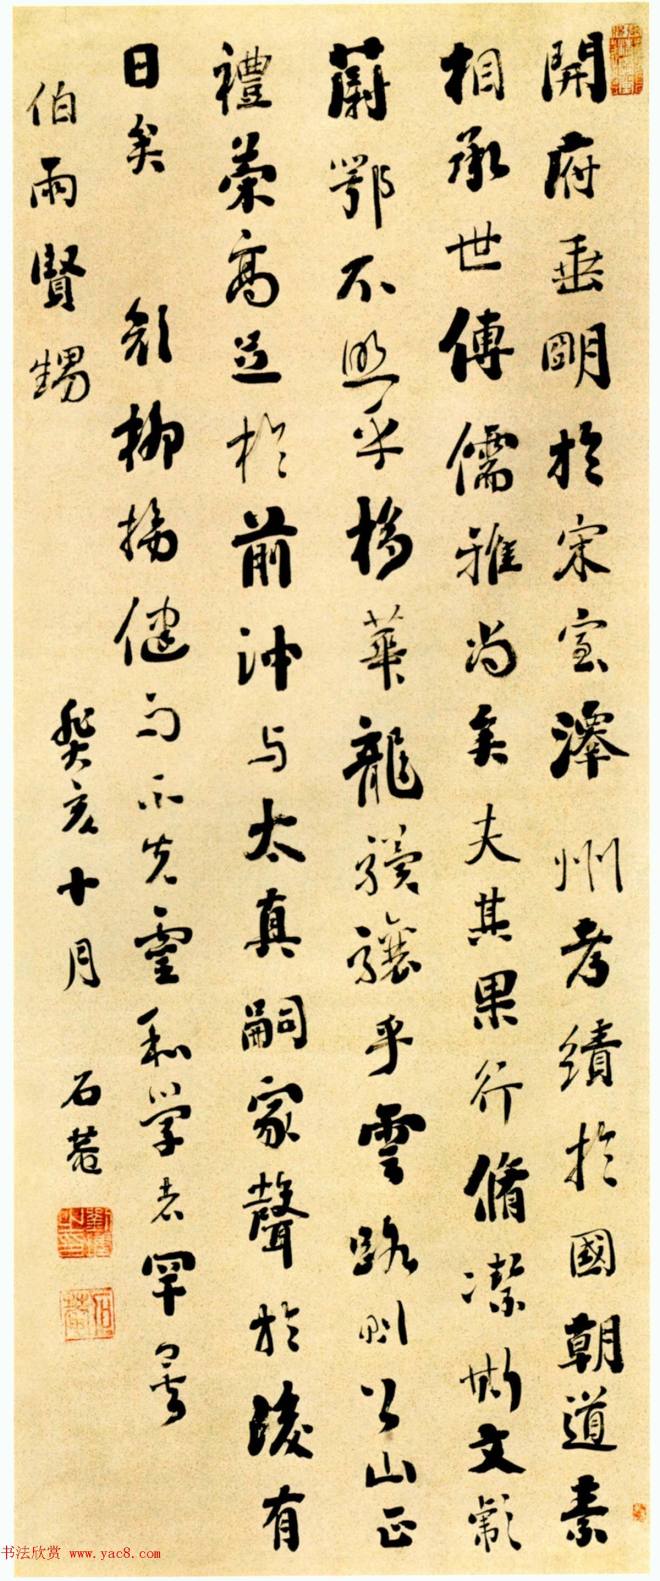 開府垂明於宋室澤州考績於國朝道素
相承世傳儒雅尚矣夫其果行脩潔斯文彪
蔚鄂不照乎棣華龍驥驤乎雲路則公山正
禮榮高足於前沖与太真嗣家聲於後有
日矣 顏柳揚健句不先靈和學者罕
伯雨賢甥
癸亥十月 石菴
书法欣赏 www.yac8.com